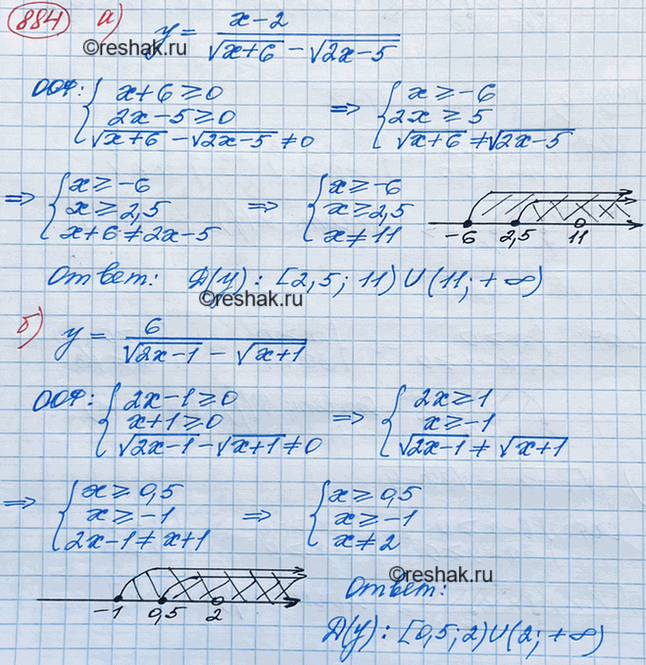 884 а) y = \frac{x-2}{\sqrt{x+6} - \sqrt{2x-5}}
©reshak.ru
ООФ: { x+6 ≥ 0 ; 2x-5 ≥ 0 ; \sqrt{x+6} - \sqrt{2x-5} ≠ 0 => { x ≥ -6 ; 2x ≥ 5 ; \sqrt{x+6} ≠ \sqrt{2x-5}
=> { x ≥ -6 ; x ≥ 2,5 ; x+6 ≠ 2x-5 => { x ≥ -6 ; x ≥ 2,5 ; x ≠ 11
-6 2,5 11
Ответ: Д(y): [2,5; 11) ∪ (11; +∞)
©reshak.ru
б) y = \frac{6}{\sqrt{2x-1} - \sqrt{x+1}}
ООФ: { 2x-1 ≥ 0 ; x+1 ≥ 0 ; \sqrt{2x-1} - \sqrt{x+1} ≠ 0 => { 2x ≥ 1 ; x ≥ -1 ; \sqrt{2x-1} ≠ \sqrt{x+1}
=> { x ≥ 0,5 ; x ≥ -1 ; 2x-1 ≠ x+1 => { x ≥ 0,5 ; x ≥ -1 ; x ≠ 2
-1 0,5 2
©reshak.ru
Ответ:
Д(y): [0,5; 2) ∪ (2; +∞)